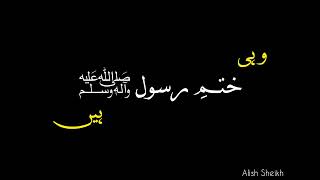 وہی
ختمِ رسول ﷺ
ہیں
Alish Sheikh